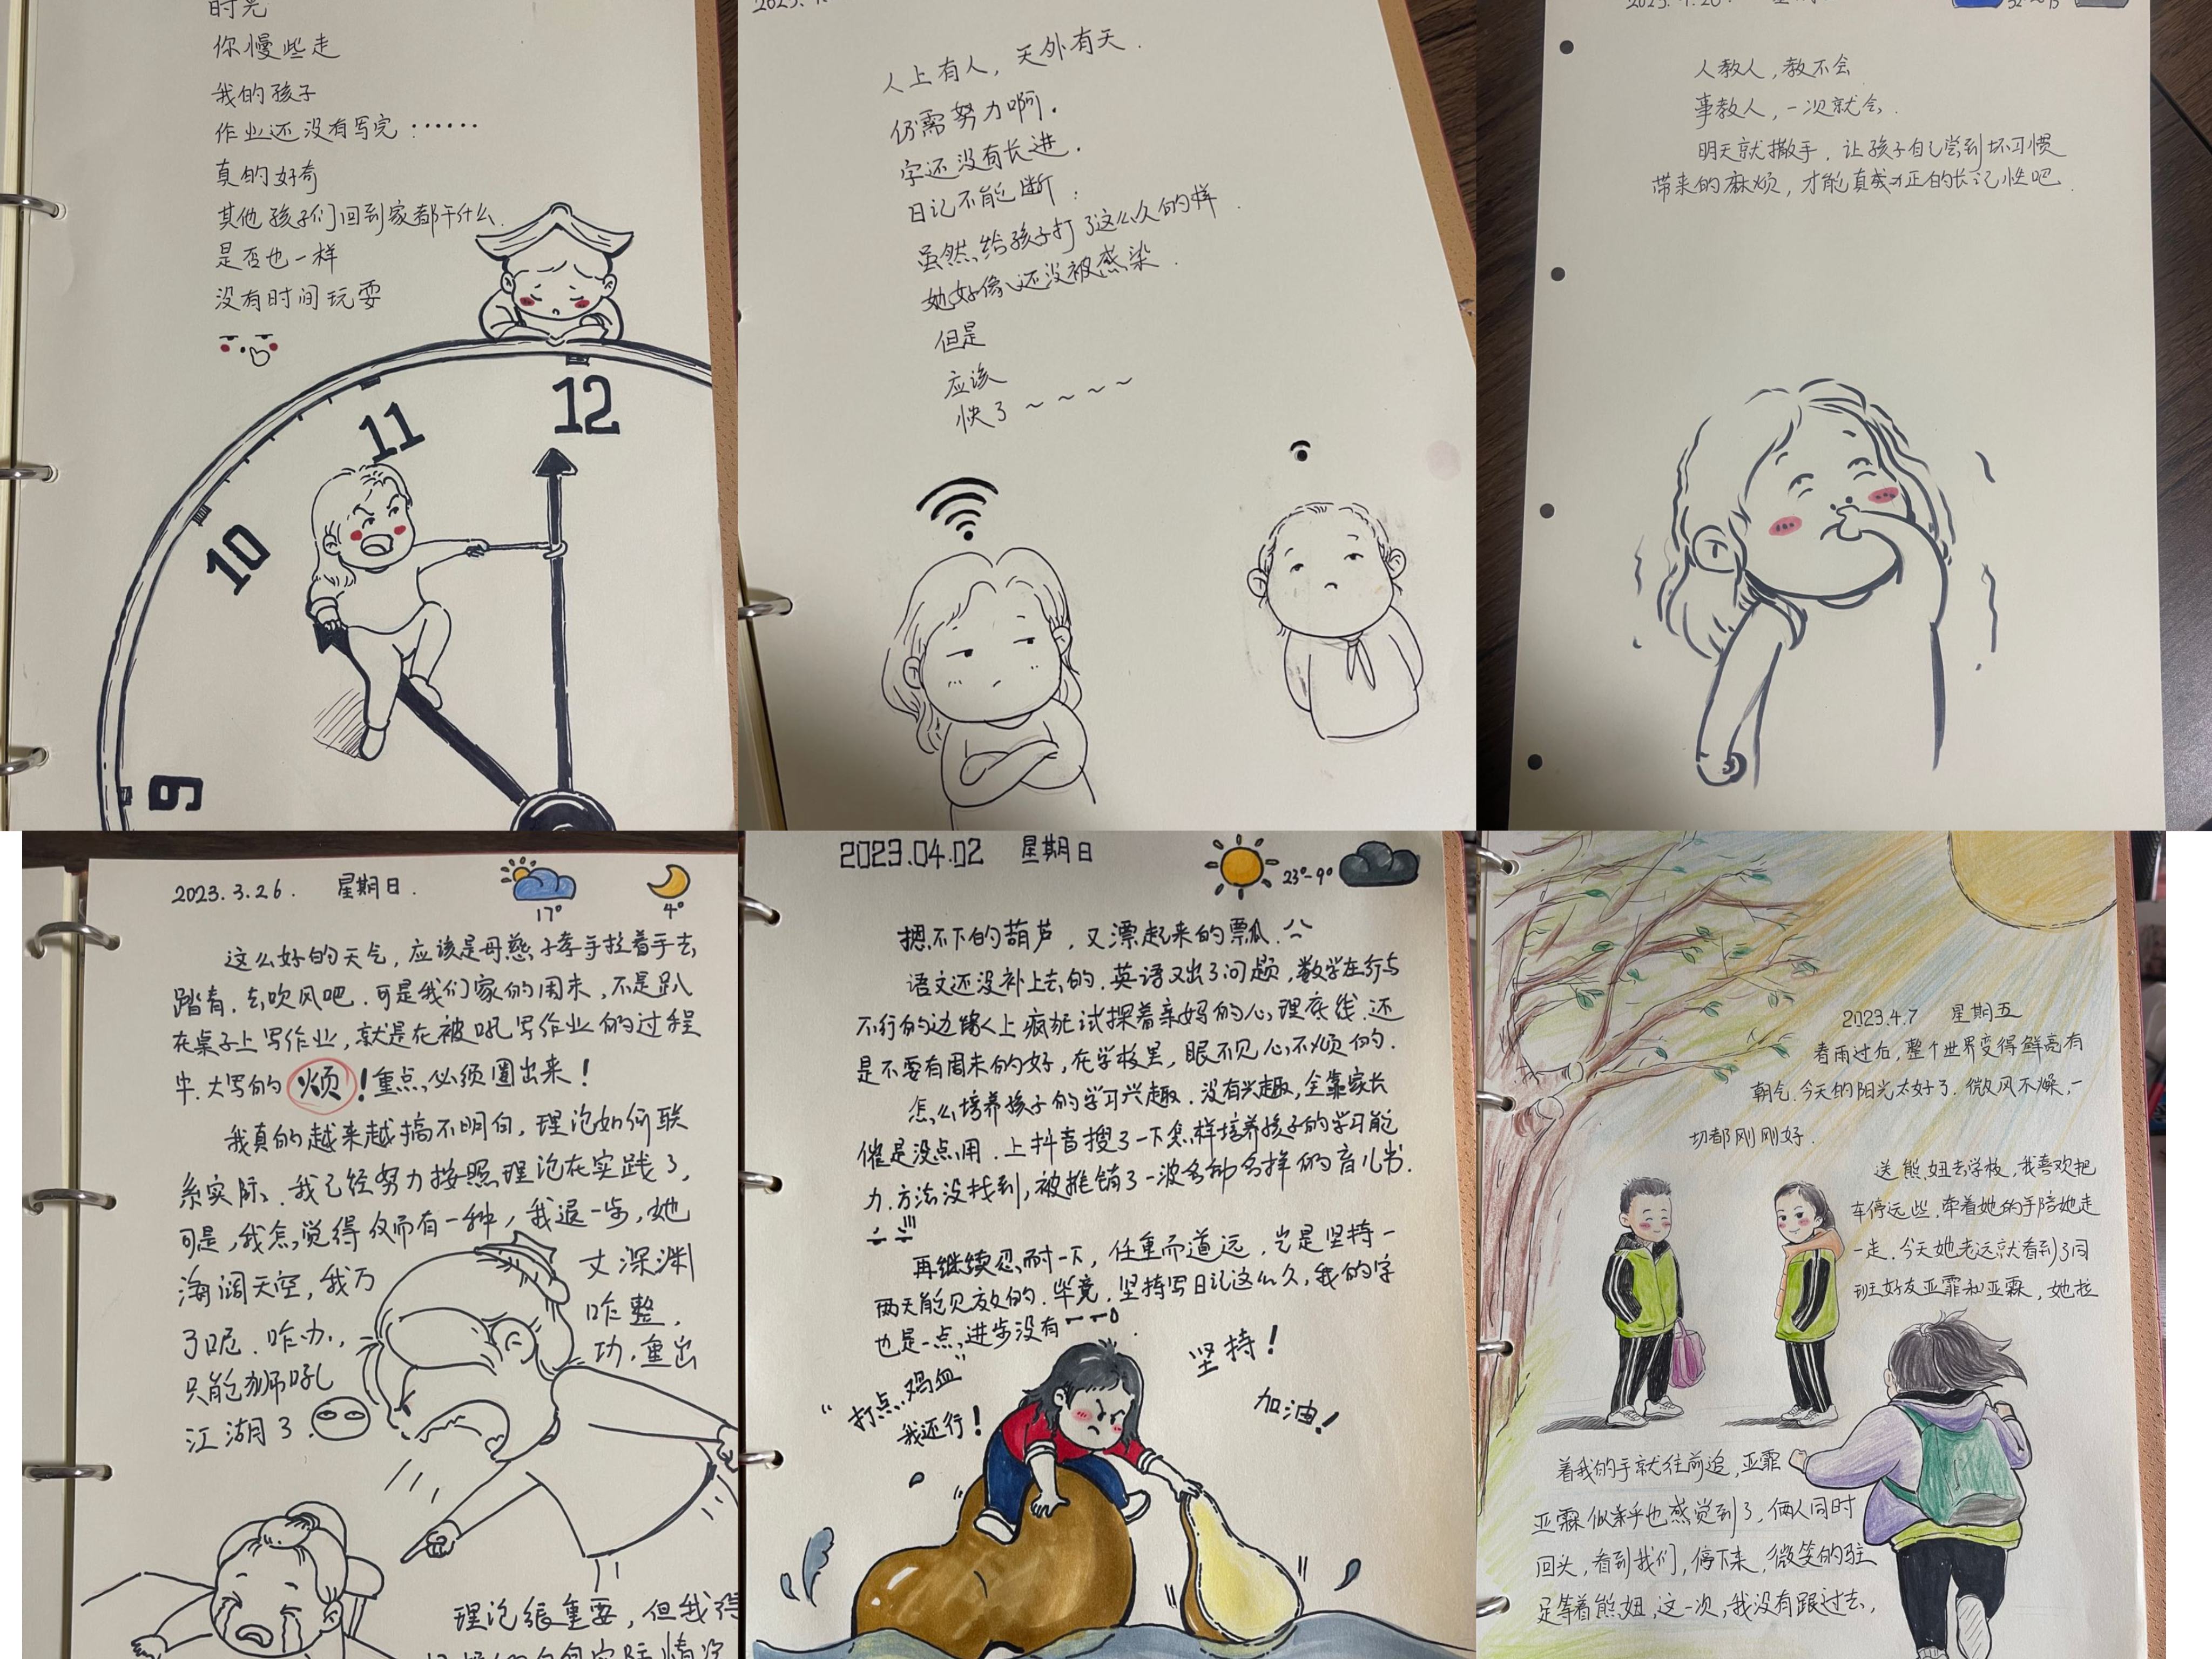 时光
你慢些走
我的孩子
作业还没有写完……
真的好奇
其他孩子们回到家都干什么
是否也一样
没有时间玩耍
12
11
10
9
人上有人，天外有天．
仍需努力啊．
字还没有长进．
日记不能断：
虽然给孩子打了这么久的样．
她好像还没被感染．
但是
应该
快了～～～～
人教人，教不会
事教人，一次就会．
明天就撒手．让孩子自己尝到坏习惯
带来的麻烦，才能真正的长记性吧．
2023.3.26． 星期日．
17° 4°
这么好的天气，应该是母慈子孝手拉着手去
踏青．去吹风吧．可是我们家的周末，不是趴
在桌子上写作业，就是在被吼写作业的过程
中．大写的烦！重点必须圈出来！
我真的越来越搞不明白，理论如何联
系实际．我已经努力按照理论在实践了，
可是，我怎觉得仅而有一种，我退一步，她
海阔天空，我万丈深渊
了呢．咋办，咋整，
只能狮吼功．重出
江湖了．
理论很重要，但我得
2023.04.02 星期日
23°-9°
摁不下的葫芦，又漂起来的瓢瓜．
语文还没补上去的．英语又出了问题，数学在行与
不行的边缘上疯狂试探着亲妈的心理底线．还
是不要有周末的好，在学校里，眼不见心不烦的．
怎么培养孩子的学习兴趣．没有兴趣，全靠家长
催是没点用．上抖音搜了一下怎样培养孩子的学习能
力．方法没找到，被推销了一波各种各样的育儿书．
再继续忍耐一下，任重而道远，岂是坚持一
两天能见效的．毕竟，坚持写日记这么久，我的字
也是一点进步没有
“打点鸡血”
我还行！
坚持！
加油！
2023.4.7 星期五
春雨过后，整个世界变得鲜亮有
朝气．今天的阳光太好了．微风不燥，一
切都刚刚好．
送熊妞去学校，我喜欢把
车停远些．牵着她的手陪她走
一走．今天她老远就看到了同
班好友亚霏和亚霖，她拉
着我的手就往前追，亚霏
亚霖似乎也感觉到了，俩人同时
回头，看到我们，停下来，微笑的驻
足等着熊妞，这一次，我没有跟过去，